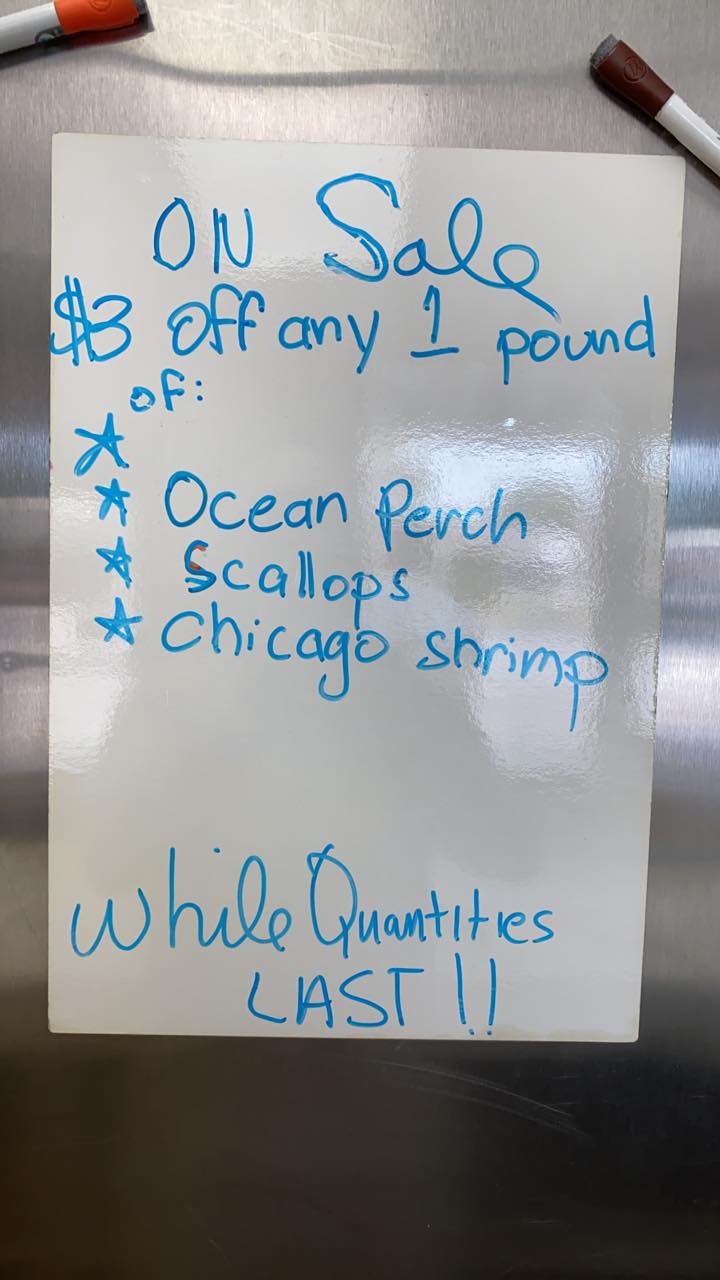 ON Sale
$3 off any 1 pound
of:
Ocean Perch
Scallops
Chicago shrimp
While Quantities
LAST!!